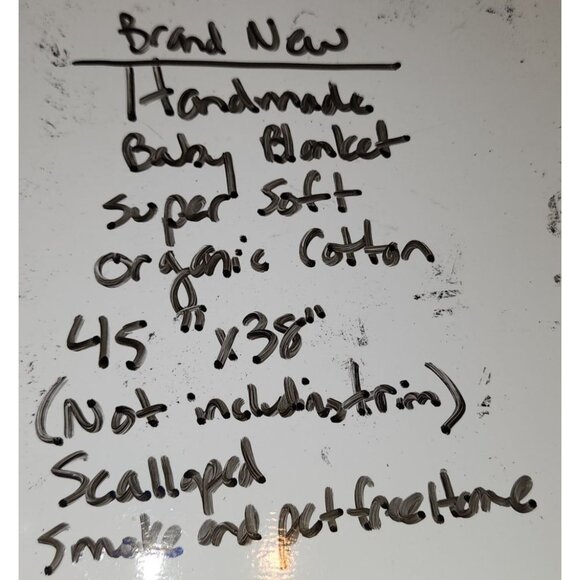 Brand New
Handmade
Baby Blanket
Super Soft
Organic Cotton
45" x38"
(Not including trim)
Scalloped
Smoke and pet free Home